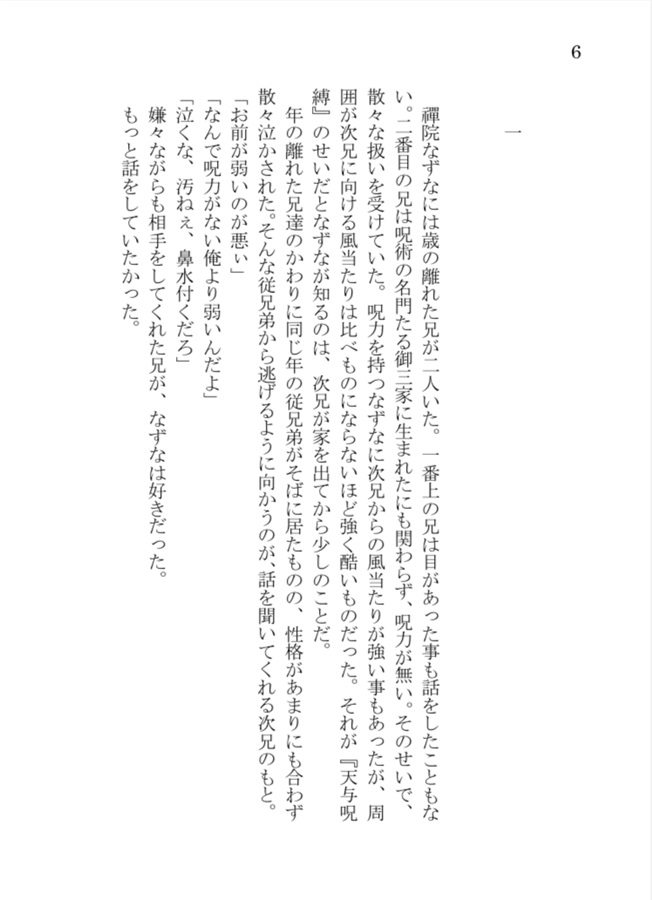 6
一
　禪院なずなには歳の離れた兄が二人いた。一番上の兄は目があった事も話をしたこともな
い。二番目の兄は呪術の名門たる御三家に生まれたにも関わらず、呪力が無い。そのせいで、
散々な扱いを受けていた。呪力を持つなずなに次兄からの風当たりが強い事もあったが、周
囲が次兄に向ける風当たりは比べものにならないほど強く酷いものだった。それが『天与呪
縛』のせいだとなずなが知るのは、次兄が家を出てから少しのことだ。
　年の離れた兄達のかわりに同じ年の従兄弟がそばに居たものの、性格があまりにも合わず
散々泣かされた。そんな従兄弟から逃げるように向かうのが、話を聞いてくれる次兄のもと。
「お前が弱いのが悪ぃ」
「なんで呪力がない俺より弱いんだよ」
「泣くな、汚ねぇ、鼻水付くだろ」
　嫌々ながらも相手をしてくれた兄が、なずなは好きだった。
　もっと話をしていたかった。